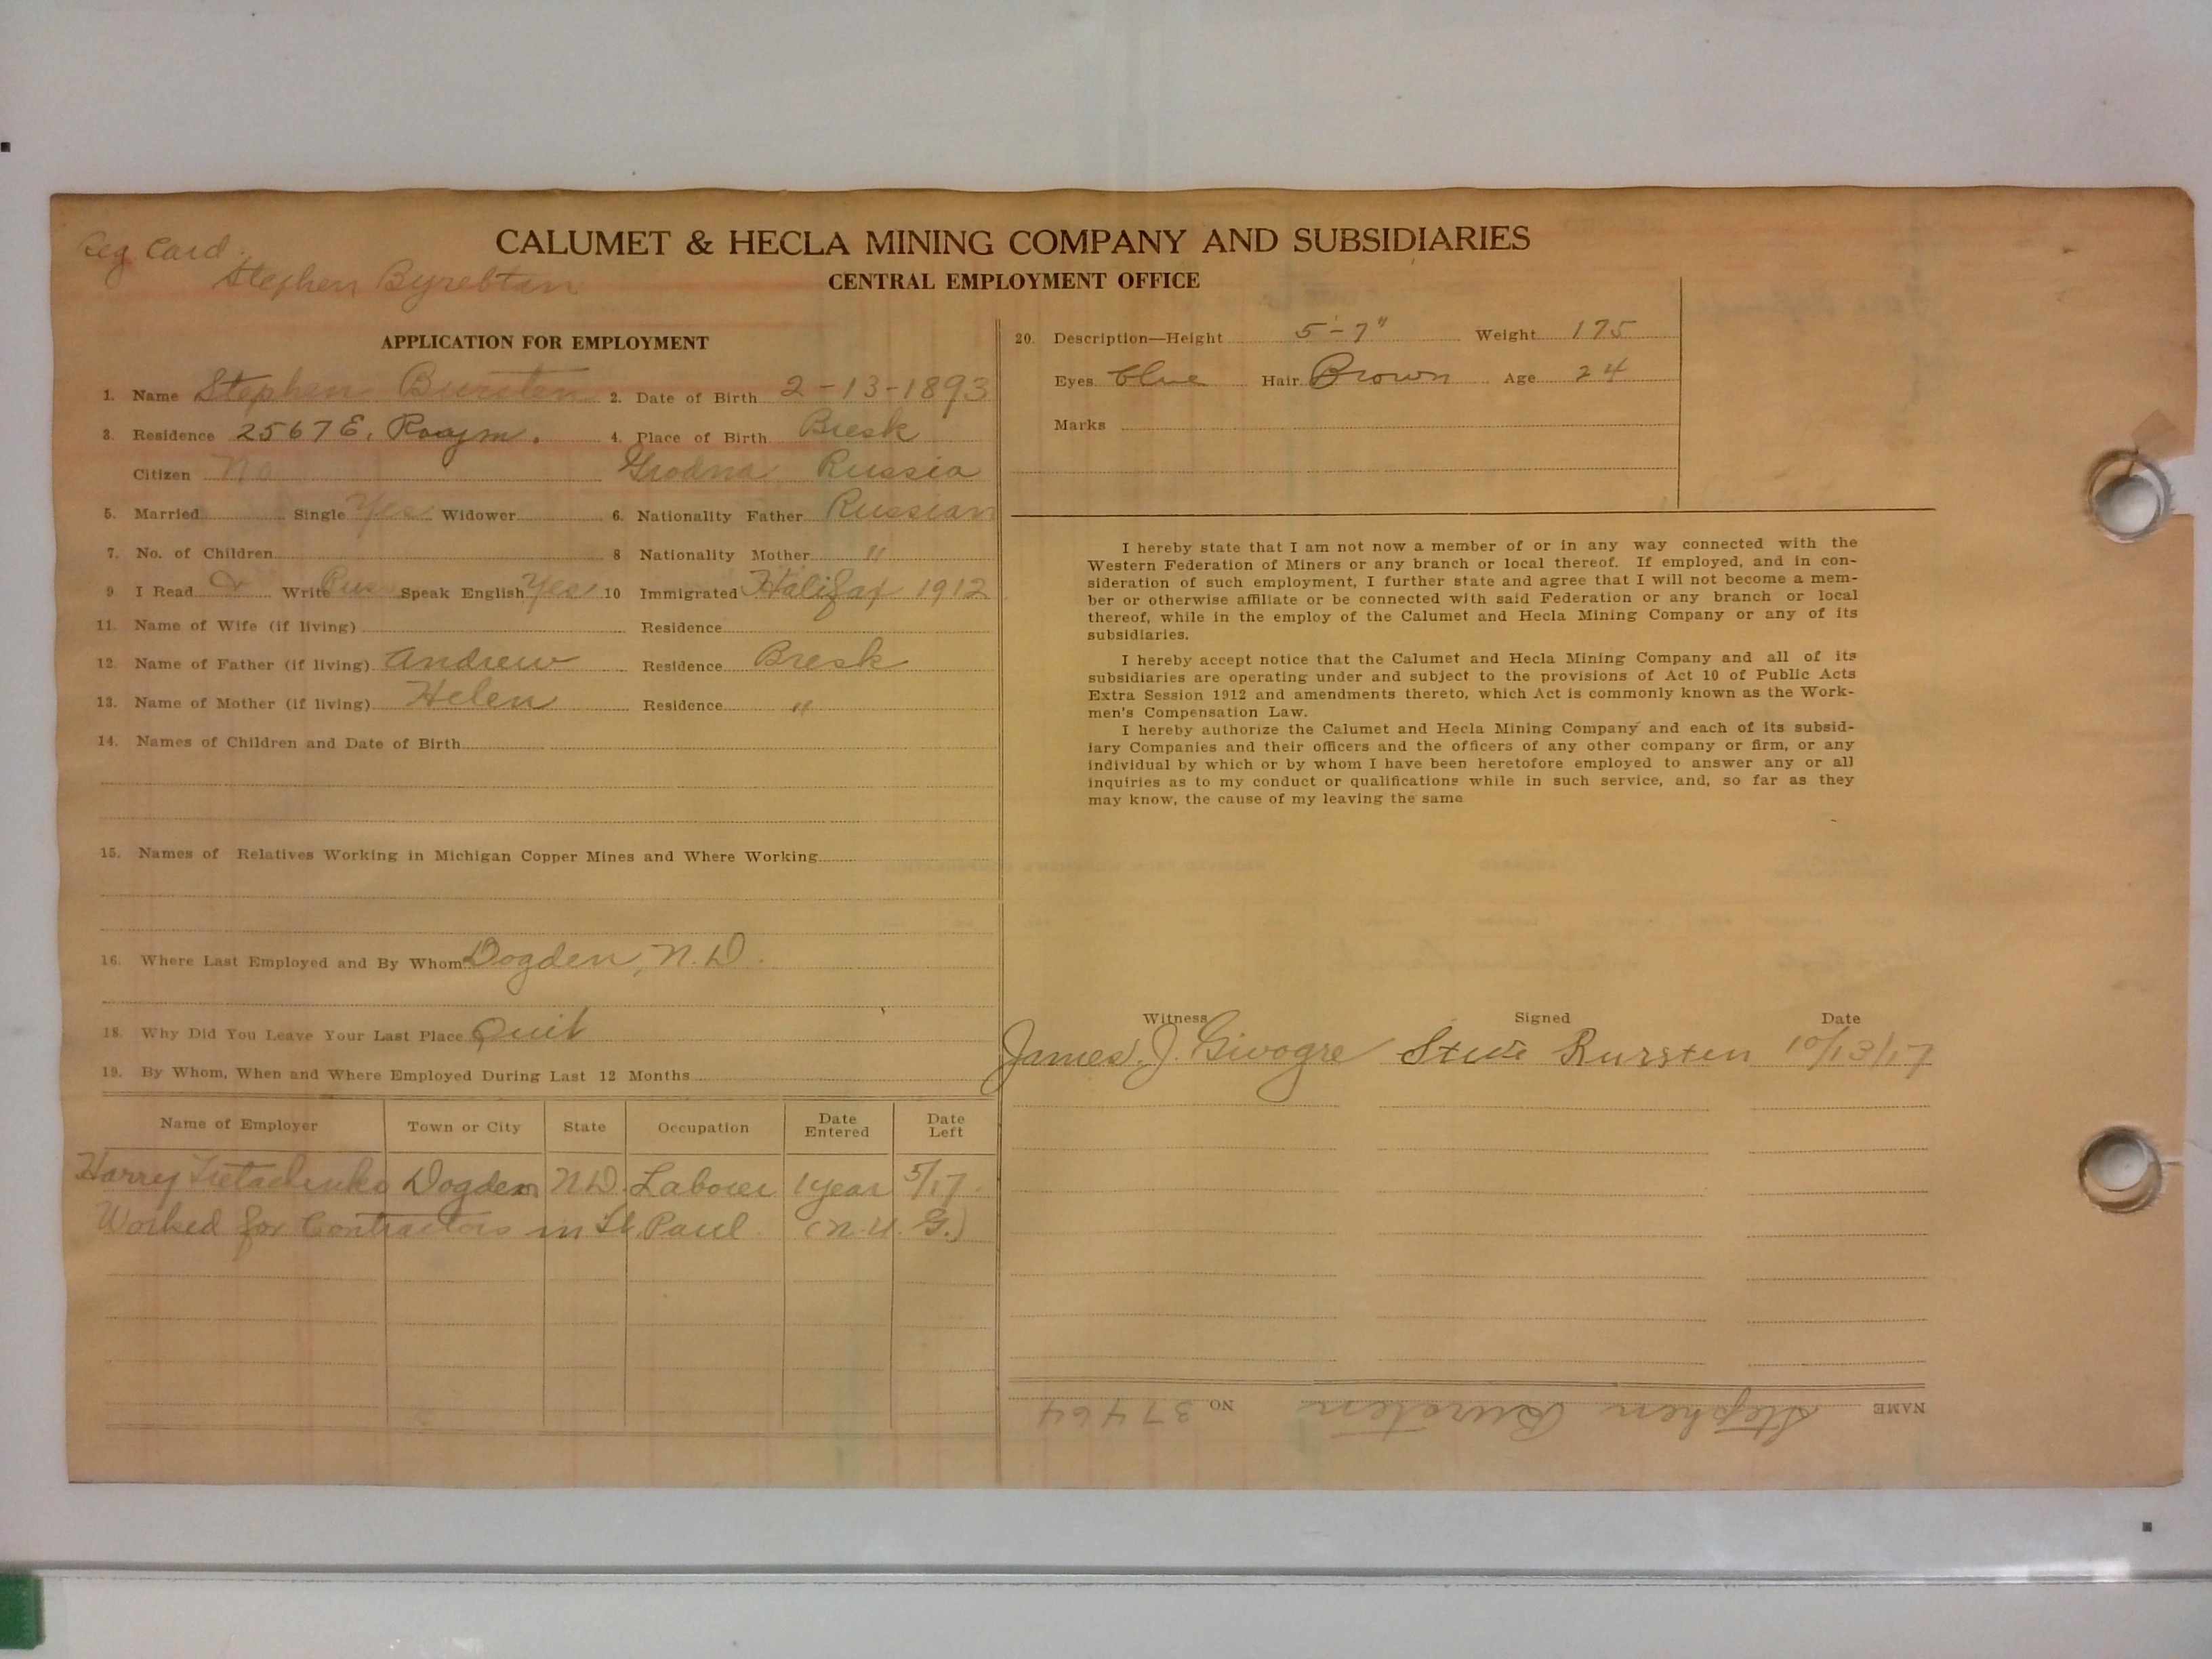 Reg Card.
Stephen Byrebten
CALUMET & HECLA MINING COMPANY AND SUBSIDIARIES
CENTRAL EMPLOYMENT OFFICE
APPLICATION FOR EMPLOYMENT
1. Name Stephen Bursten 2. Date of Birth 2-13-1893
3. Residence 2567 E. Raym. 4. Place of Birth Bresk
Citizen No Grodna Russia
5. Married Single Yes Widower 6. Nationality Father Russian
7. No. of Children 8 Nationality Mother "
9 I Read & Write Rus Speak English Yes 10 Immigrated Halifax 1912
11. Name of Wife (if living) Residence
12. Name of Father (if living) Andrew Residence Bresk
13. Name of Mother (if living) Helen Residence "
14. Names of Children and Date of Birth
15. Names of Relatives Working in Michigan Copper Mines and Where Working
16. Where Last Employed and By Whom Dogden, N.D.
18. Why Did You Leave Your Last Place Quit
19. By Whom, When and Where Employed During Last 12 Months
Name of Employer Town or City State Occupation Date Entered Date Left
Harry Dogden N.D. Laborer 1 year 5/17.
Worked for Contractors in St. Paul (N.U.G.)
20. Description—Height 5'-7" Weight 175
Eyes blue Hair Brown Age 24
Marks
I hereby state that I am not now a member of or in any way connected with the
Western Federation of Miners or any branch or local thereof. If employed, and in con-
sideration of such employment, I further state and agree that I will not become a mem-
ber or otherwise affiliate or be connected with said Federation or any branch or local
thereof, while in the employ of the Calumet and Hecla Mining Company or any of its
subsidiaries.
I hereby accept notice that the Calumet and Hecla Mining Company and all of its
subsidiaries are operating under and subject to the provisions of Act 10 of Public Acts
Extra Session 1912 and amendments thereto, which Act is commonly known as the Work-
men's Compensation Law.
I hereby authorize the Calumet and Hecla Mining Company and each of its subsid-
iary Companies and their officers and the officers of any other company or firm, or any
individual by which or by whom I have been heretofore employed to answer any or all
inquiries as to my conduct or qualifications while in such service, and, so far as they
may know, the cause of my leaving the same
Witness Signed Date
James J. Stive Rursten 10/13/17
NAME Stephen Bursten NO. 37464